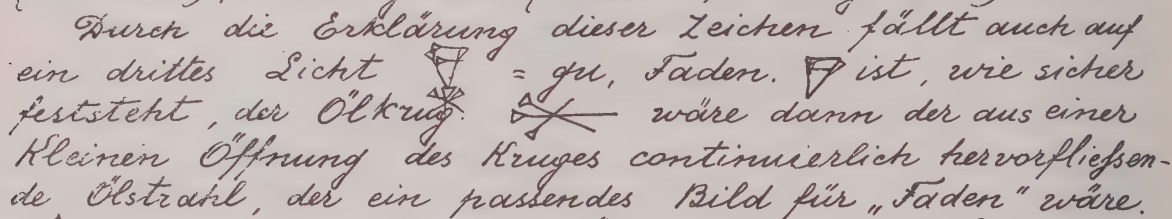 Durch die Erklärung dieser Zeichen fällt auch auf
ein drittes Licht = gu, Faden. ist, wie sicher
feststeht, der Ölkrug. wäre dann der aus einer
kleinen Öffnung des Kruges continuierlich hervorfließen-
de Ölstrahl, der ein passendes Bild für „Faden“ wäre.